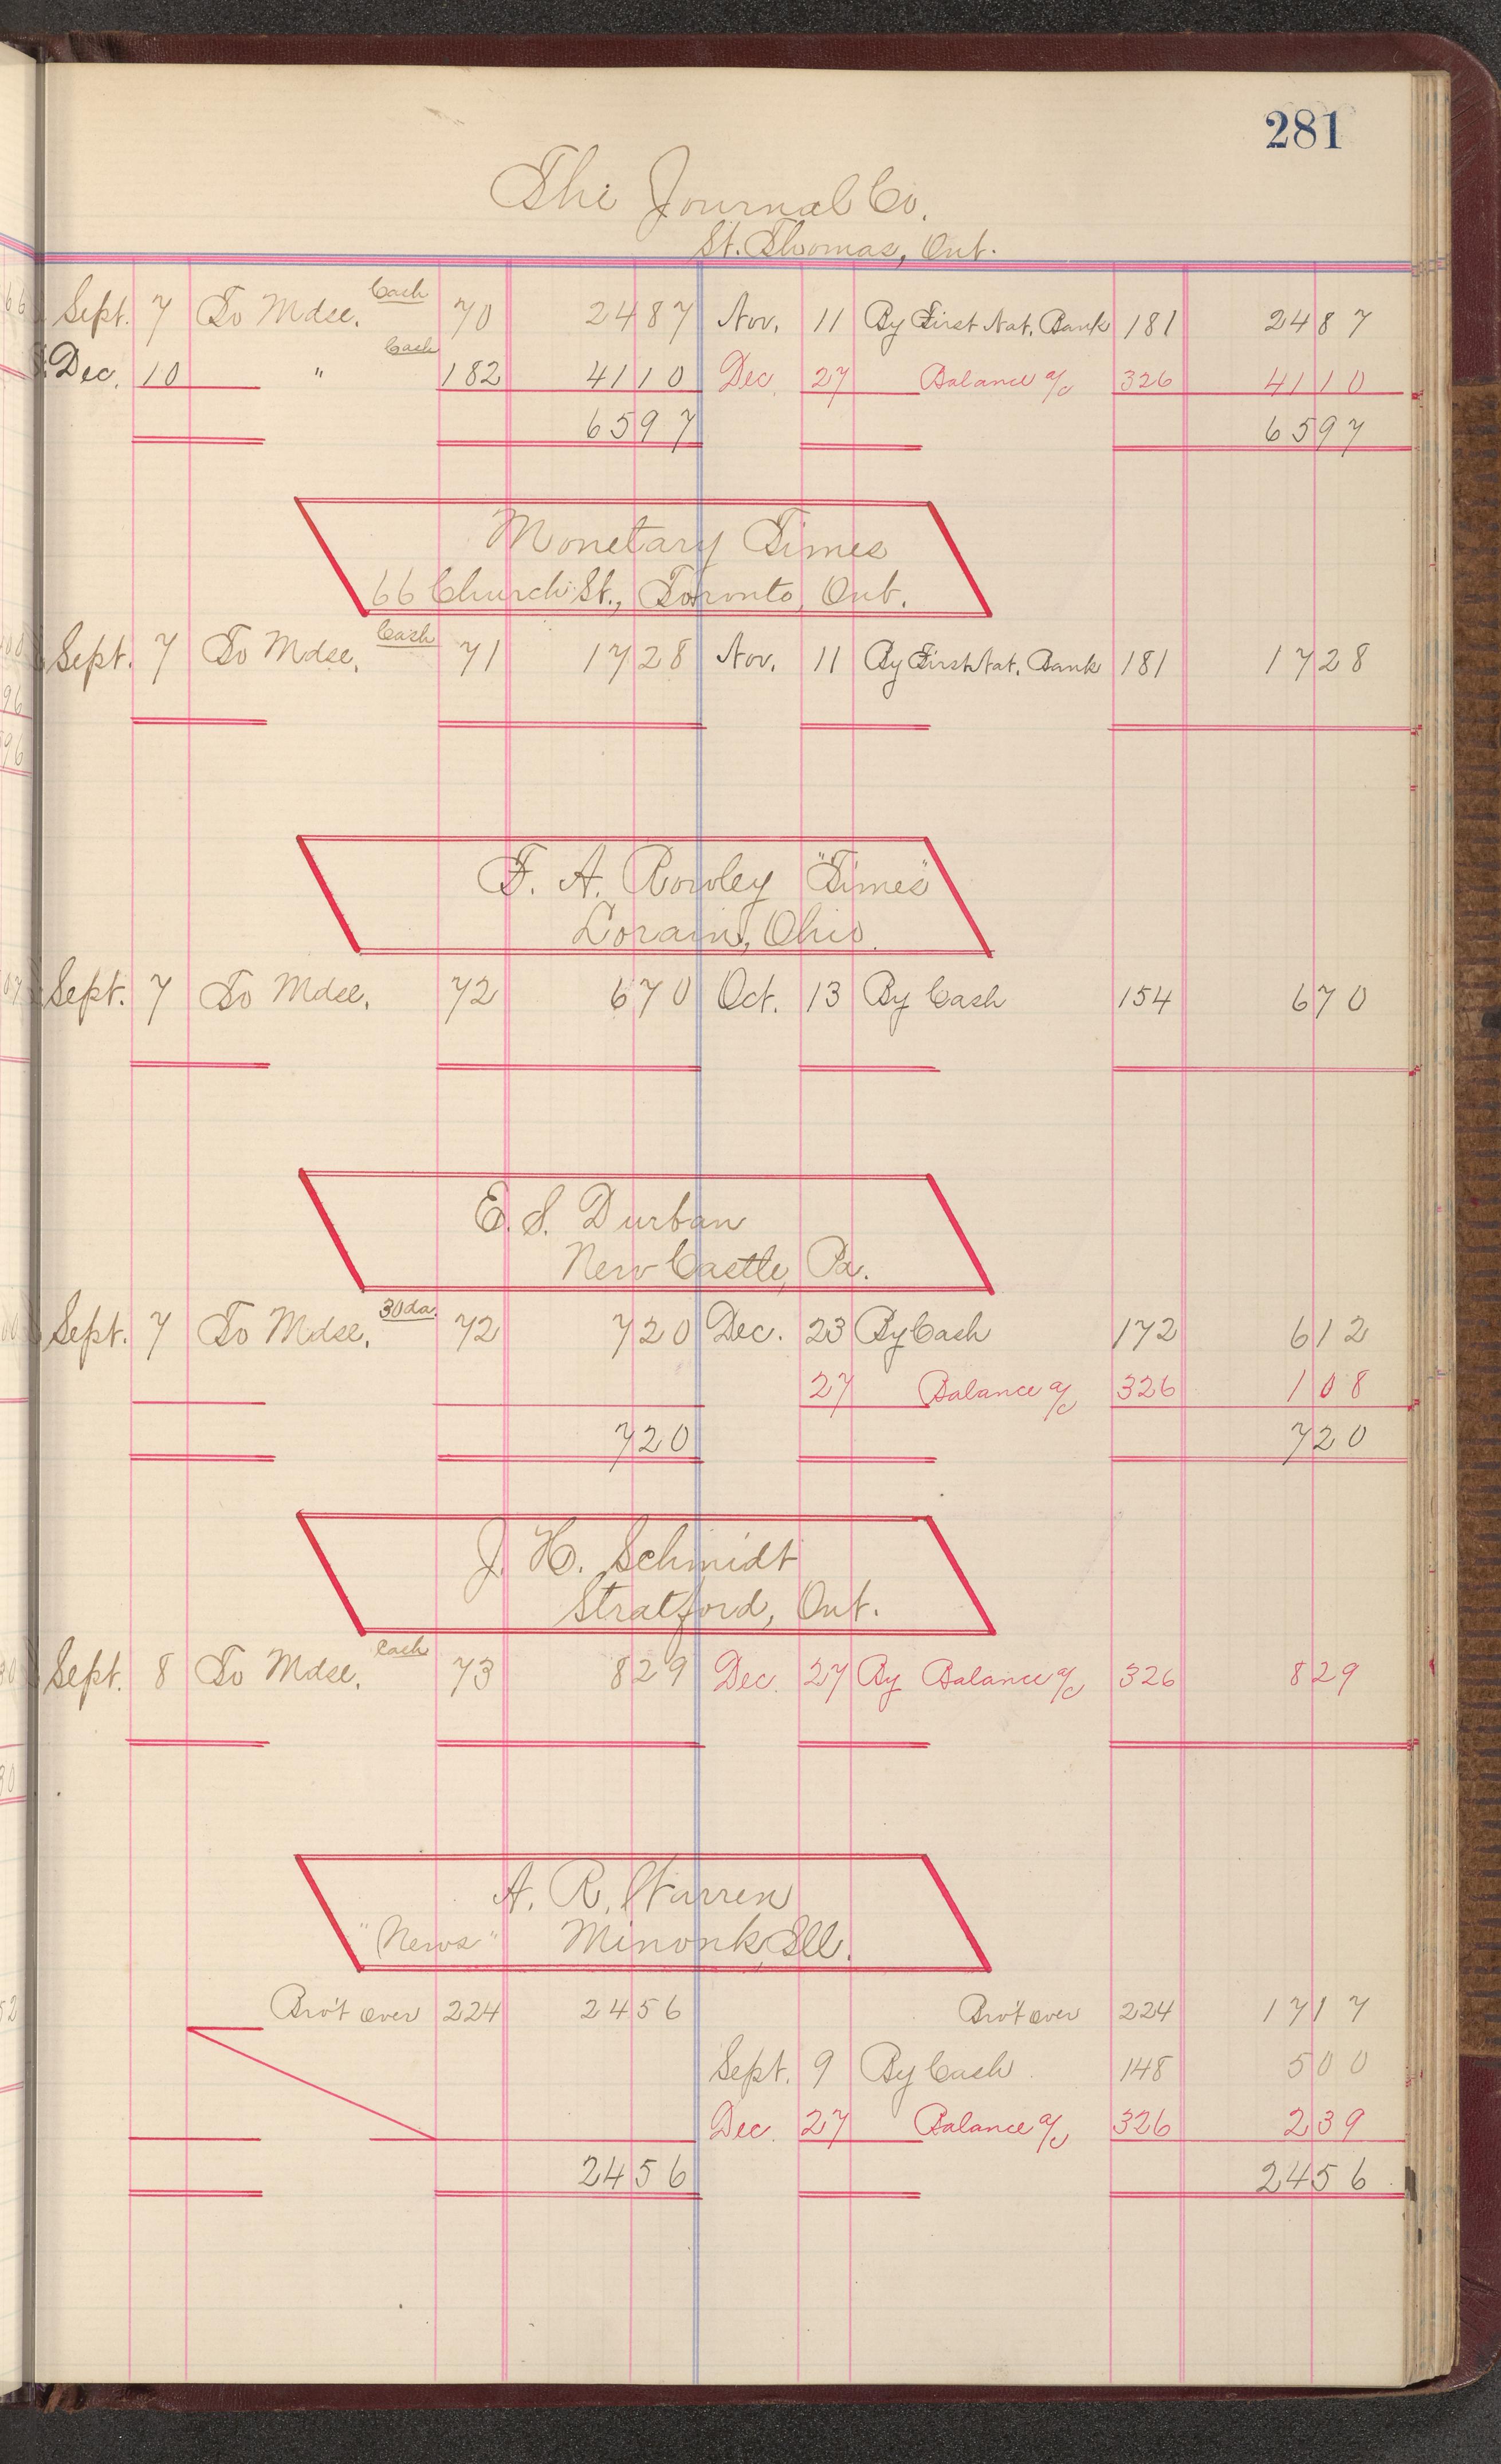 281
The Journal Co.
St. Thomas, Ont.
Sept. 7 To Mdse. Cash 70 24 87 Nov. 11 By First Nat. Bank 181 24 87
Dec. 10 " Cash 182 41 10 Dec. 27 Balance a/c 326 41 10
65 97 65 97
Monetary Times
66 Church St., Toronto, Ont.
Sept. 7 To Mdse. Cash 71 17 28 Nov. 11 By First Nat. Bank 181 17 28
F. A. Rowley "Times"
Lorain, Ohio.
Sept. 7 To Mdse. 72 6 70 Oct. 13 By Cash 154 6 70
E. S. Durban
New Castle, Pa.
Sept. 7 To Mdse. 30 da. 72 7 20 Dec. 23 By Cash 172 6 12
27 Balance a/c 326 1 08
7 20 7 20
J. H. Schmidt
Stratford, Ont.
Sept. 8 To Mdse. Cash 73 8 29 Dec. 27 By Balance a/c 326 8 29
A. R. Warren
"News" Minonk, Ill.
Bro't over 224 24 56 Bro't over 224 17 17
Sept. 9 By Cash 148 5 00
Dec. 27 Balance a/c 326 2 39
24 56 24 56